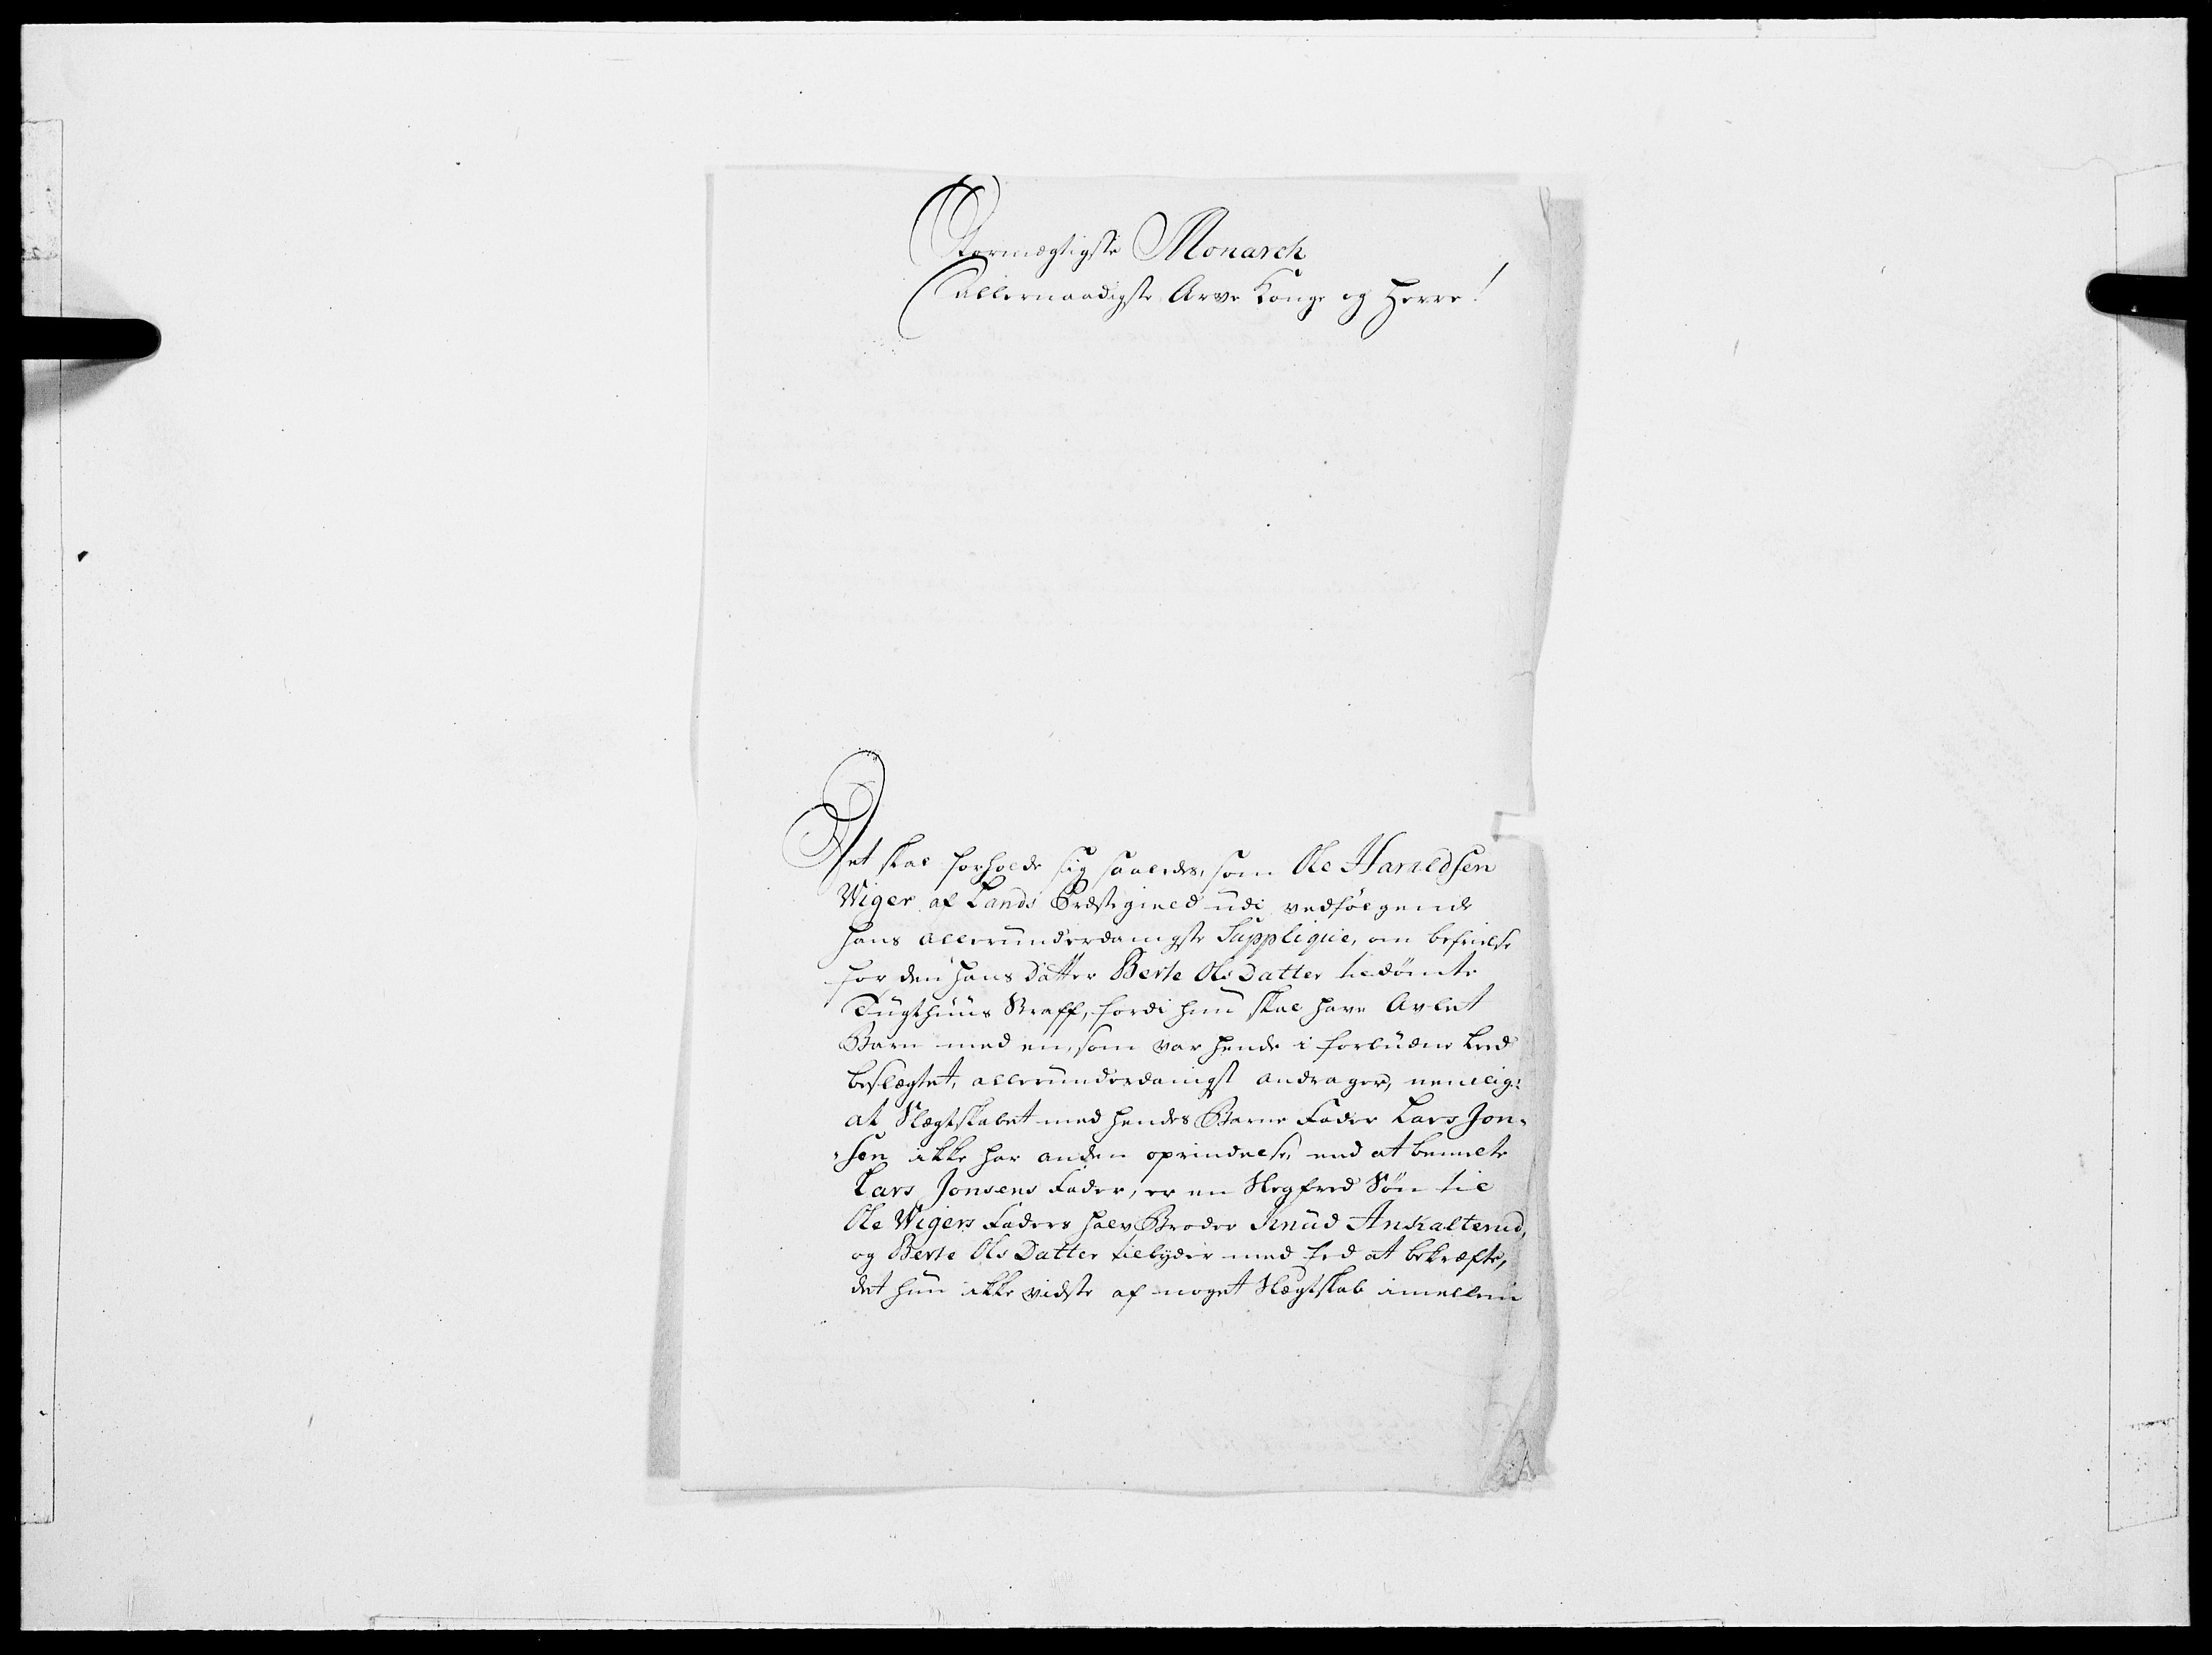 Stormægtigste Monarch
Allernaadigste Arve Konge og Herre!
Det skal forholde sig saaledes, som Ole Haraldsen
Wiger af Lands Præstegield udi vedfølgende
hans allerunderdanigste Supplique, om befrielse
for den hans Datter Berte Ols Datter tildömte
Tugthuus Straff, fordi hun skal have Avlet
Barn med en, som var hende i forbudne Leed
beslægtet, allerunderdanigst andrager, nemlig:
at Slægtskabet med hendes Barne Fader Lars Jon-
-sen ikke har anden oprindelse, end at bemelte
Lars Jonsens Fader, er en Slegfred Sön til
Ole Wigers Faders halv Broder Knud Ankalterud,
og Berte Ols Datter tilbyder med Eed at bekræfte,
det hun ikke vidste af noget Slægtskab imellem